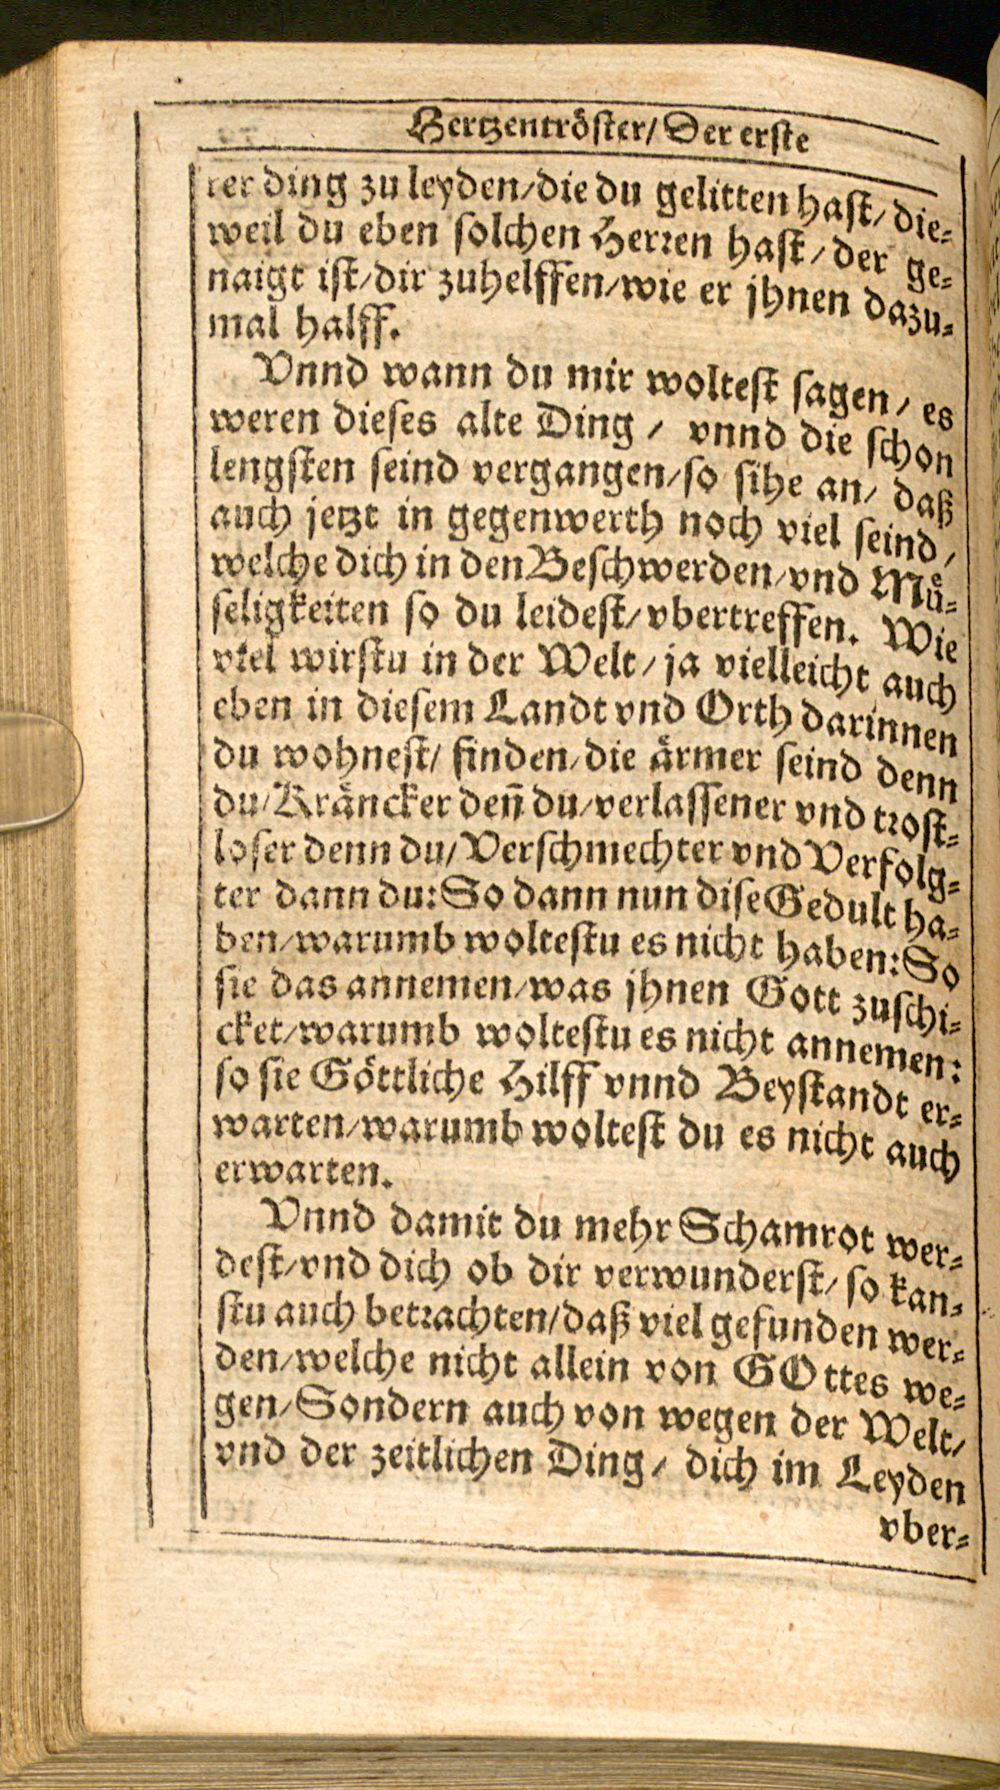 Hertzentröster/ Der erste
rer ding zu leyden/die du gelitten hast/ die⸗
weil du eben solchen Herren hast/ der ge⸗
naigt ist/dir zuhelffen/wie er jhnen dazu⸗
mal halff.
Vnnd wann du mir woltest sagen/ es
weren dieses alte Ding/ vnnd die schon
lengsten seind vergangen/so sihe an/ daß
auch jetzt in gegenwerth noch viel seind/
welche dich in den Beschwerden/vnd Mü⸗
seligkeiten so du leidest/vbertreffen. Wie
viel wirstu in der Welt/ ja vielleicht auch
eben in diesem Landt vnd Orth darinnen
du wohnest/ finden/die ärmer seind denn
du/Kräncker deñ du/verlassener vnd trost⸗
loser denn du/Verschmechter vnd Verfolg⸗
ter dann du: So dann nun dise Gedult ha⸗
ben/warumb woltestu es nicht haben: So
sie das annemen/was jhnen Gott zuschi⸗
cket/warumb woltestu es nicht annemen:
so sie Göttliche Hilff vnnd Beystandt er⸗
warten/warumb woltest du es nicht auch
erwarten.
Vnnd damit du mehr Schamrot wer⸗
dest/vnd dich ob dir verwunderst/ so kan⸗
stu auch betrachten/daß viel gefunden wer⸗
den/welche nicht allein von GOttes we⸗
gen/Sondern auch von wegen der Welt/
vnd der zeitlichen Ding/ dich im Leyden
vber⸗